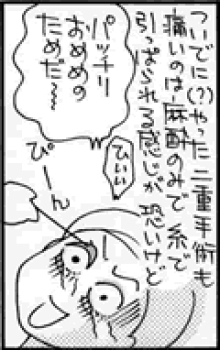 ついでに(?)やった二重手術も
痛いのは麻酔のみで糸で
引っぱられる感じが恐いけど
パッチリ
おめめの
ためだ〜〜
ひいい
ぴーん